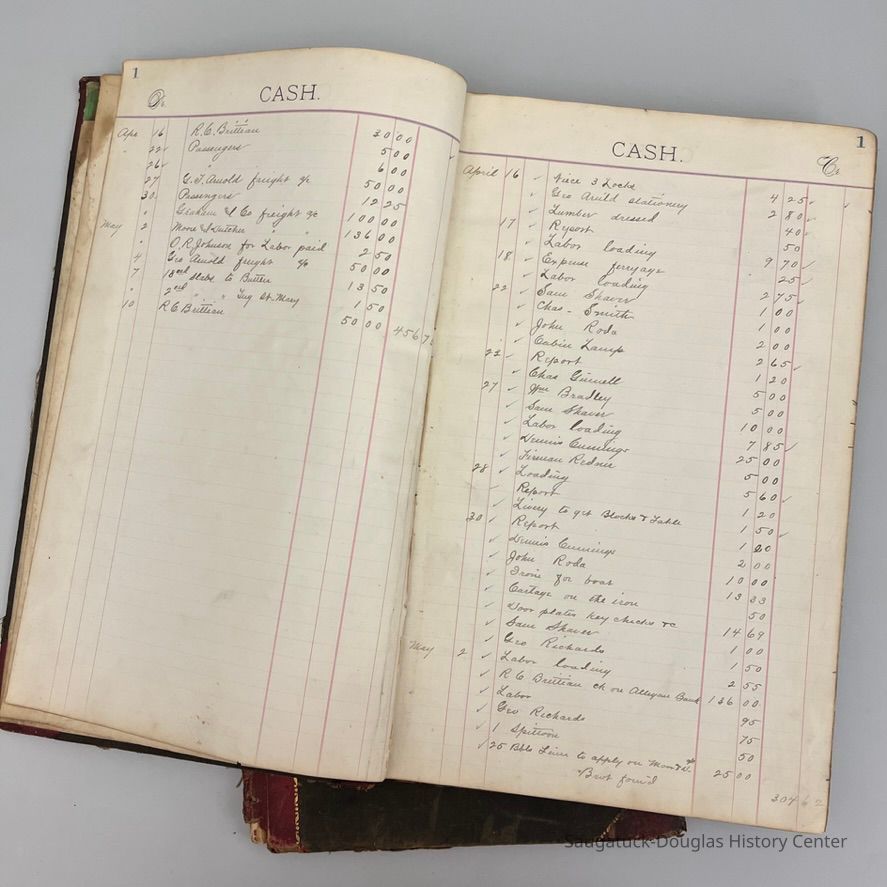 1
Dr.
CASH.
Apr 16 R. C. Brittian 30 00
22 Passengers 5 00
26 " 6 00
27 G. T. Arnold freight % 50 00
30 Passengers 12 25
" Graham & Co freight % 100 00
May 2 Moore & Kutcher " " 136 00
" O. R. Johnson for Labor paid 2 50
4 Geo Arnold freight % 50 00
7 18 cd slabs to Butler 13 50
" 2 cd " " Tug St. Mary 1 50
10 R C Brittian 50 00
456 7
1
CASH.
Cr.
April 16 Niece 3 Locks 4 25
Geo Arnold stationery 2 80
Lumber dressed 40
17 Report 50
Labor loading 9 70
18 Expense ferryage 25
Labor loading 2 75
22 Sam Shaver 1 00
Chas. Smith 1 00
John Roda 2 00
Cabin Lamp 2 65
23 Report 1 20
Chas 5 00
27 Wm Bradley 5 00
Sam Shaver 10 00
Labor loading 7 85
Dennis Cummings 25 00
Fireman 5 00
28 Loading 5 60
Report 1 20
Livery to get Blocks & 1 50
30 Report 1 20
Dennis Cummings 2 00
John Roda 10 00
Irons for boat 13 33
Cartage on the iron 50
Door plates key checks &c 14 69
Sam Shaver 1 00
Geo Richards 1 50
May 2 Labor loading 2 55
R C Brittian ck on Allegan Bank 136 00
Labor 95
Geo Richards 75
1 Spittoon 50
25 Bbls Lime to apply on 25 00
Brot forw'd
304 62
Saugatuck-Douglas History Center